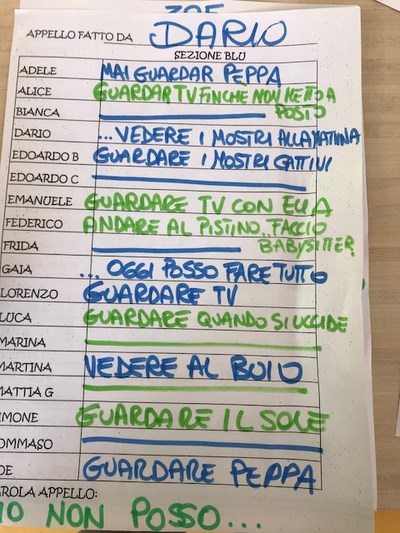 ZOE
APPELLO FATTO DA DARIO
SEZIONE BLU
ADELE MAI GUARDAR PEPPA
ALICE GUARDAR TV FINCHE NON METTO A POSTO
BIANCA
DARIO ...VEDERE I MOSTRI ALLA MATTINA
EDOARDO B GUARDARE I MOSTRI CATTIVI
EDOARDO C
EMANUELE GUARDARE TV CON EVA
FEDERICO ANDARE AL PISTINO.. FACCIO BABYSITTER
FRIDA
GAIA ... OGGI POSSO FARE TUTTO
LORENZO GUARDARE TV
LUCA GUARDARE QUANDO SI UCCIDE
MARINA
MARTINA VEDERE AL BUIO
MATTIA G
IMONE GUARDARE IL SOLE
OMMASO
OE GUARDARE PEPPA
AROLA APPELLO:
IO NON POSSO...